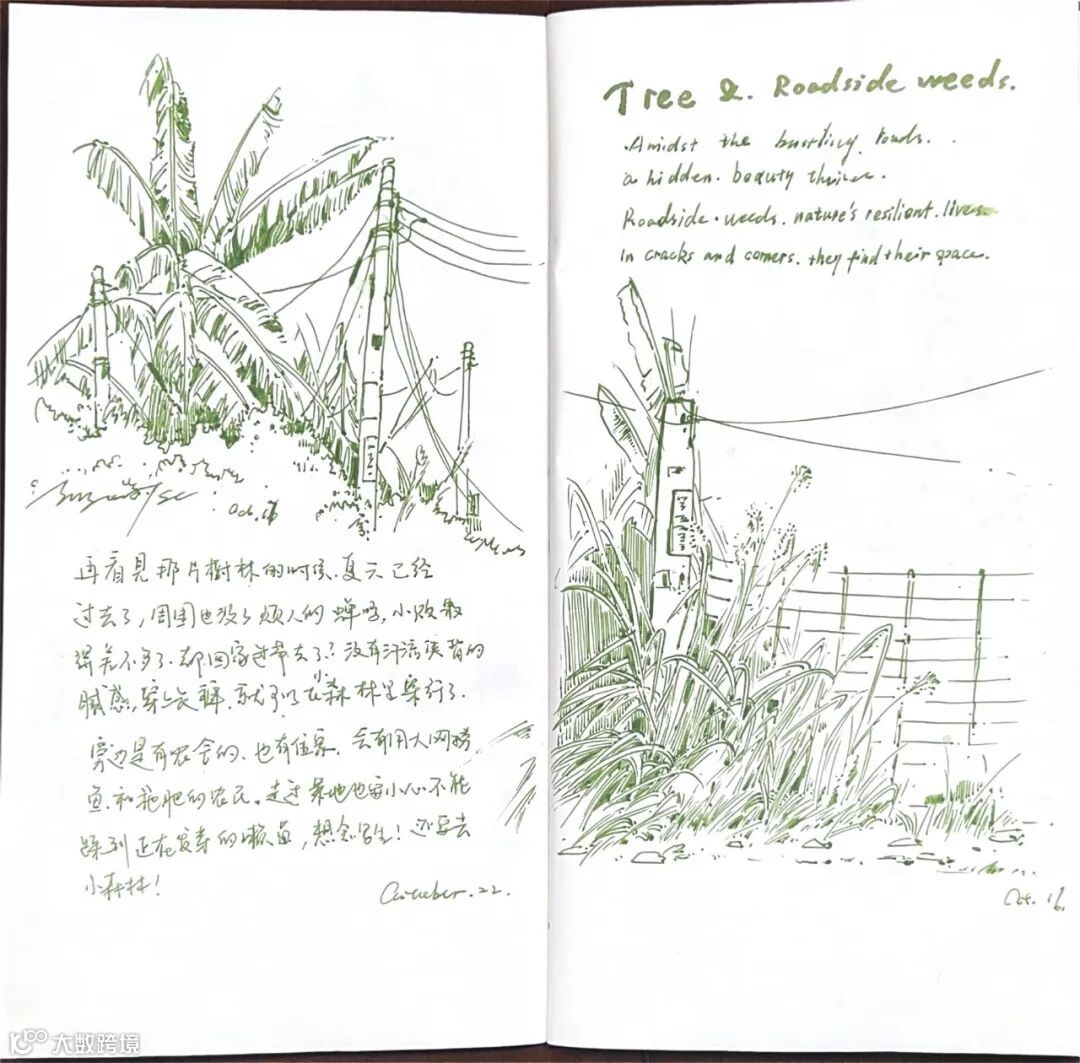 Oct. 16
再看見那片樹林的时候、夏天已经
过去了，周围也没了烦人的蝉鸣，小
了、却回家 了？没有汗流浃背的
腻感，穿上长裤，就可以去森林里 行了
旁边是有农舍的、也有住客、会有用大网捞
鱼和施肥的农民。走过菜地也要小心不能
踩到正在发 的 ，想念 ！还要去
小森林！
October. 22.
Tree &. Roadside weeds.
.Amidst the bustling roads. .
a hidden. beauty thrives.
Roadside. weeds. nature's resilient. lives.
In cracks and corners. they find their space.
Oct. 16.
大数跨境